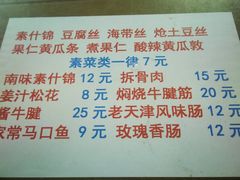 素什锦 豆腐丝 海带丝 炝土豆丝
果仁黄瓜条 煮果仁 酸辣黄瓜敦
素菜类一律 7 元
南味素什锦 12 元 拆骨肉 15 元
姜汁松花 8 元 焖烧牛腱筋 20 元
酱牛腱 25 元 老天津风味肠 12 元
家常马口鱼 9 元 玫瑰香肠 12 元